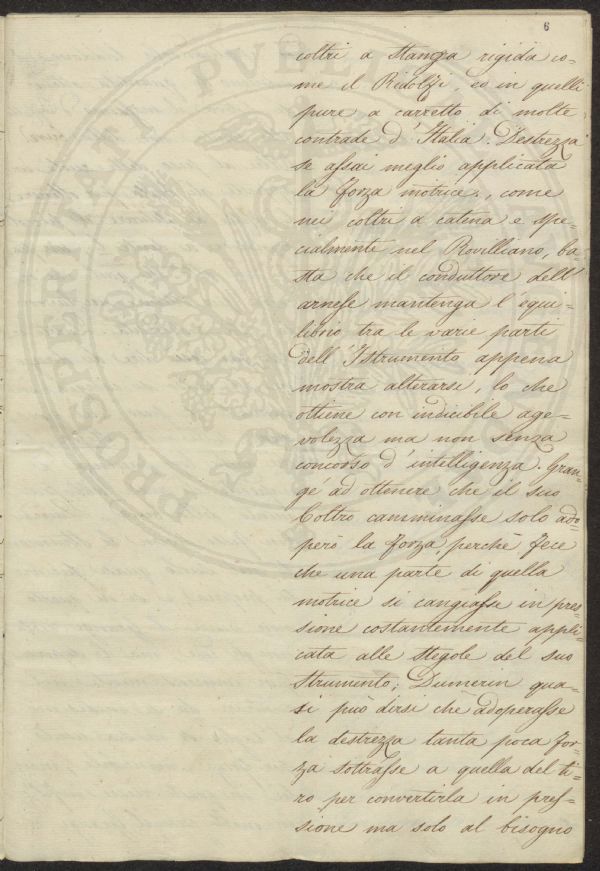 6
coltri a stanga rigida co-
me il Ridolfi, ed in quelli
pure a carretto di molte
contrade d'Italia. Destrezza
se assai meglio applicata
la forza motrice, come
nei coltri a catena e spe-
cialmente nel Rovilliano, ba-
sta che il conduttore dell'
arnese mantenga l equi-
librio tra le varie parti
dell'Istrumento appena
mostra alterarsi, lo che
ottiene con indicibile age-
volezza ma non senza
concorso d'intelligenza. Gran-
gé ad ottenere che il suo
Coltro camminasse solo ado-
però la forza, perchè fece
che una parte di quella
motrice si cangiasse in pres-
sione costantemente appli-
cata alle stegole del suo
strumento; Dumerin qua-
si può dirsi che adoperasse
la destrezza tanta poca for-
za sottrasse a quella del ti-
ro per convertirla in pres-
sione ma solo al bisogno
PROSPERITATI PVBL